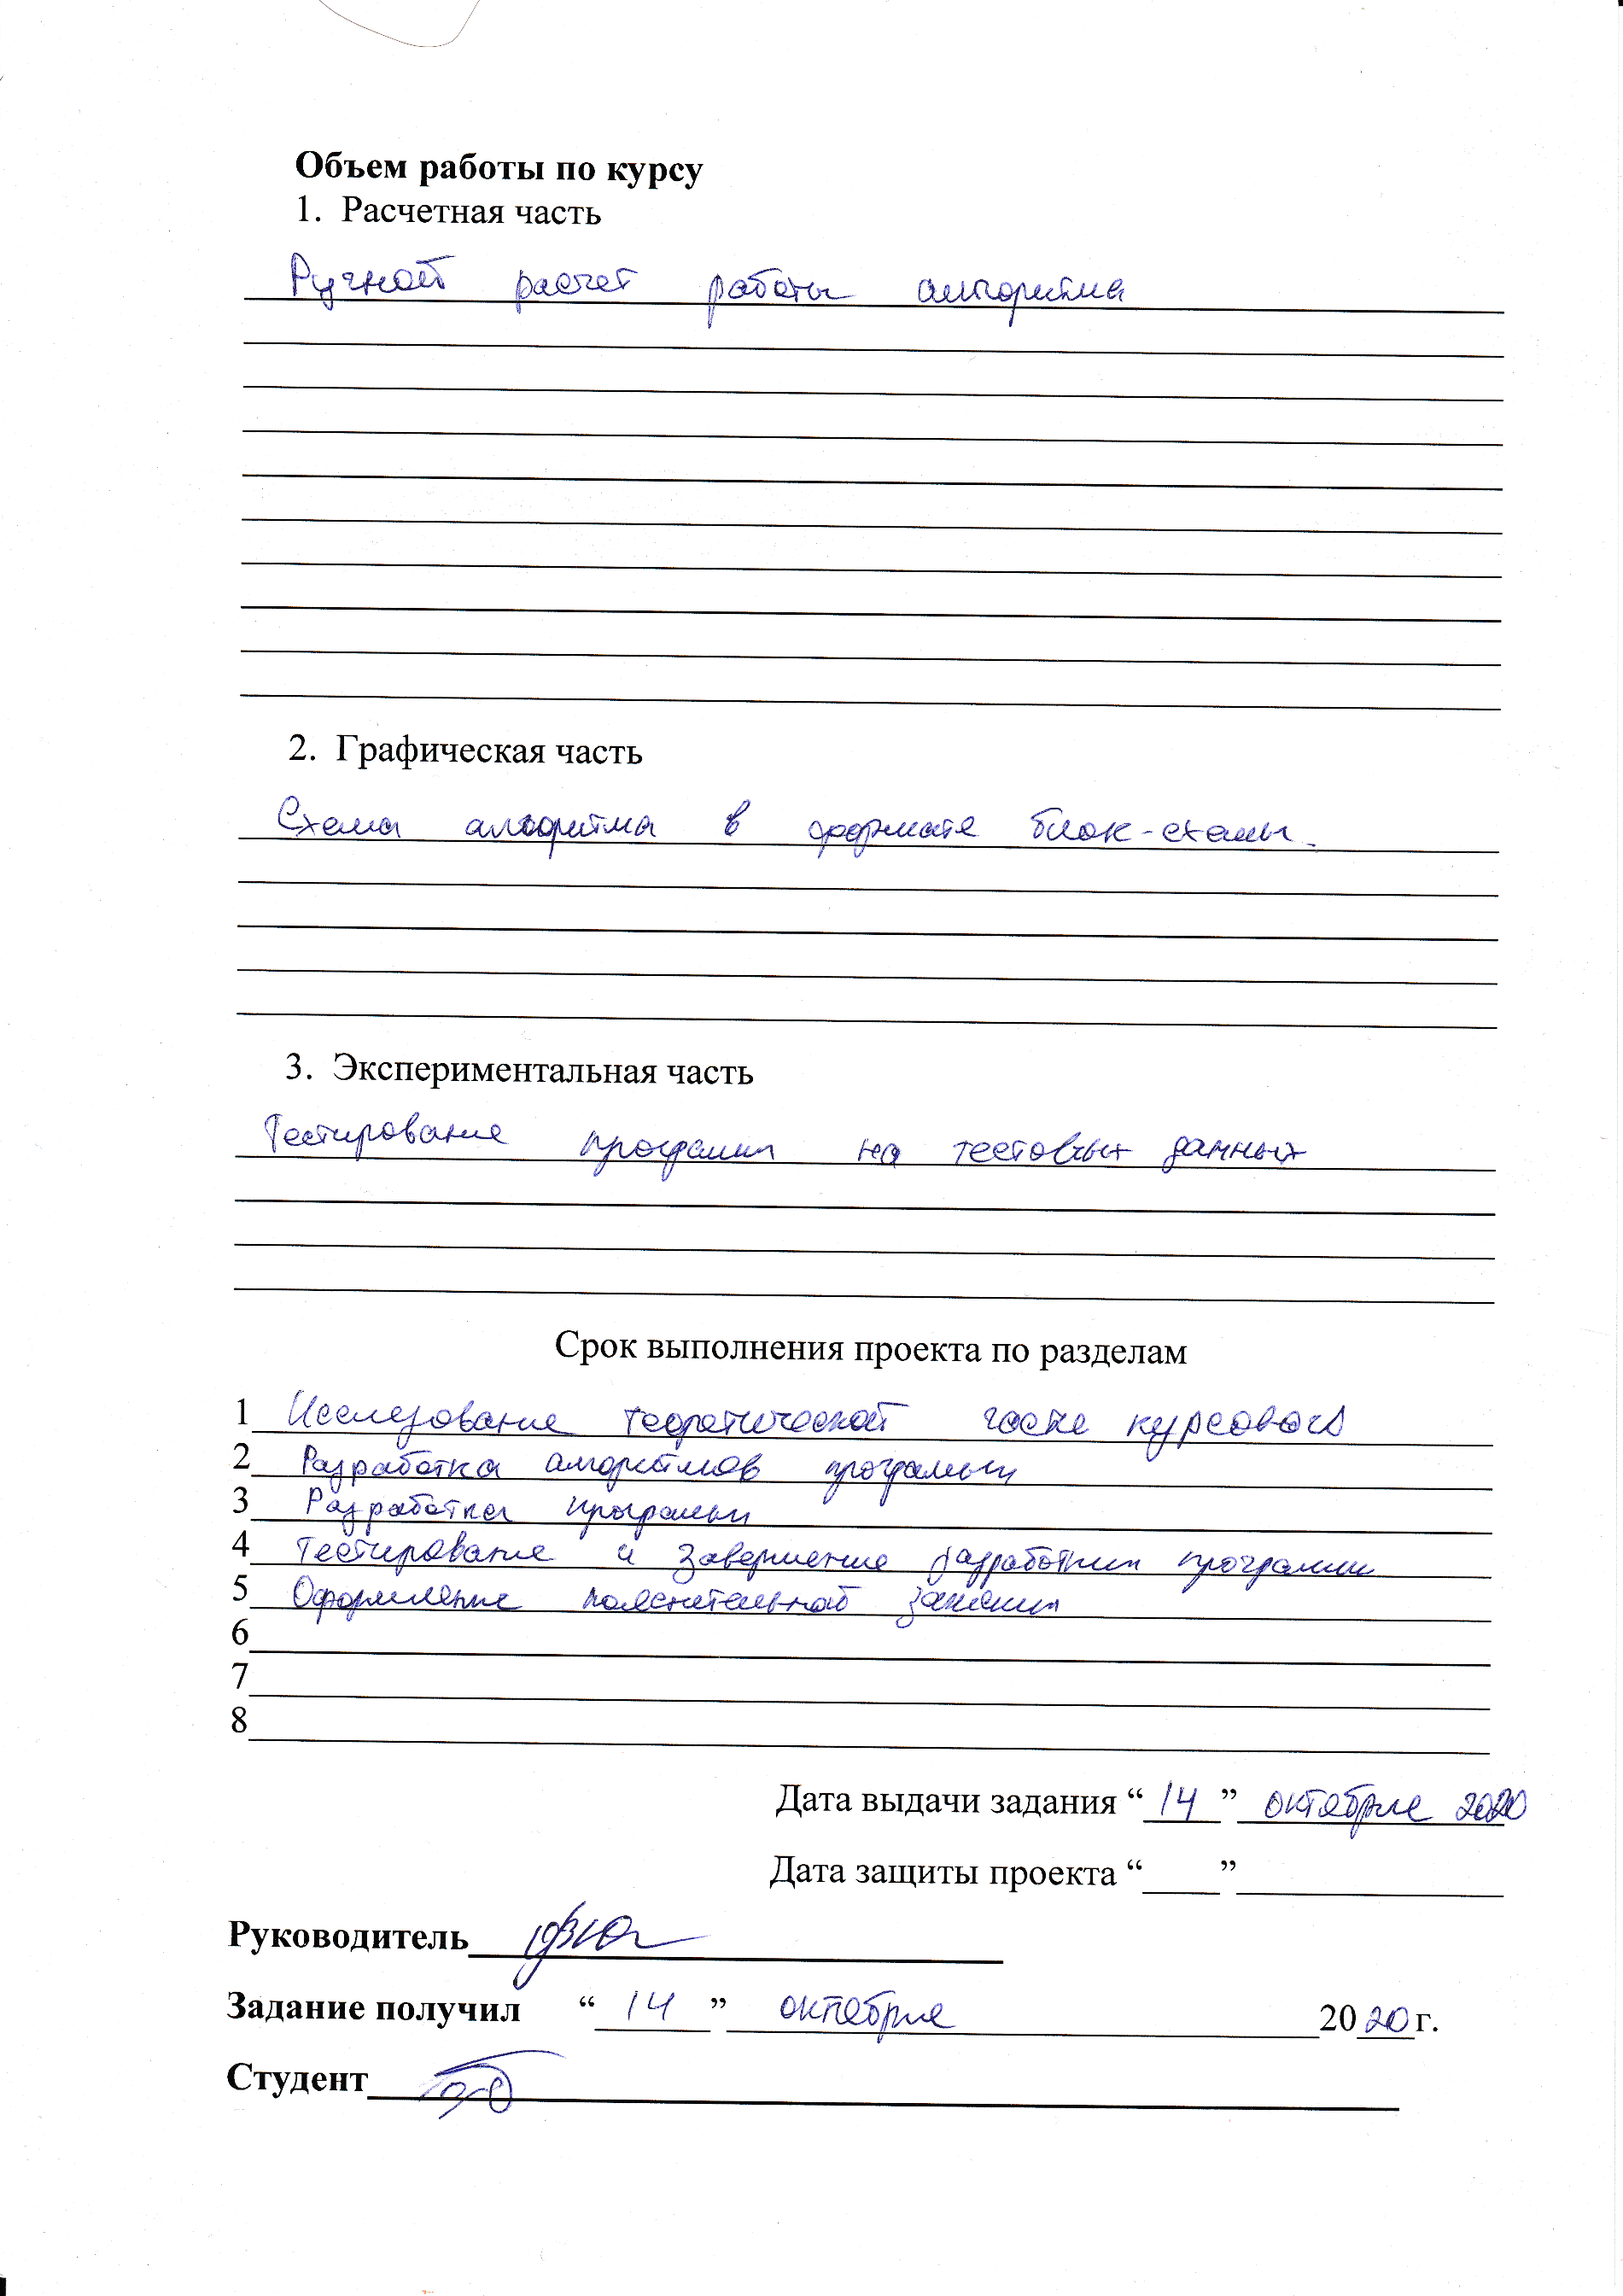 Объем работы по курсу
1. Расчетная часть
Ручной расчет работы алгоритма
2. Графическая часть
Схема алгоритма в формате блок-схемы.
3. Экспериментальная часть
Тестирование программы на тестовых данных
Срок выполнения проекта по разделам
1 Исследование теоретической части курсового
2 Разработка алгоритмов программы
3 Разработка программы
4 Тестирование и завершение разработки программы
5 Оформление пояснительной записки
6
7
8
Дата выдачи задания “ 14 ” октября 2020
Дата защиты проекта “____”
Руководитель
Задание получил “ 14 ” октября 2020 г.
Студент